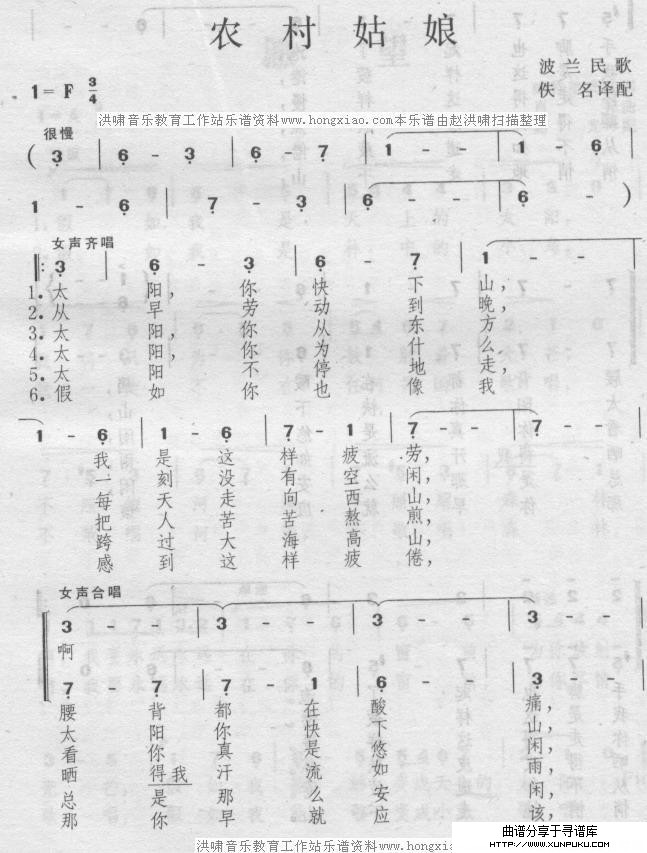 农村姑娘
波兰民歌
1= F 3/4 佚 名译配
洪啸音乐教育工作站乐谱资料www.hongxiao.com本乐谱由赵洪啸扫描整理
很慢
( 3 | 6 - 3 | 6 - 7 | 1 - - | 1 - 3 |
1 - 6 | 7 - 3 | 6 - - | 6 - )
女声齐唱
‖: 3 | 6 - 3 | 6 - 7 | 1 - - |
1. 太阳，你快下山，
2. 从早劳动到晚，
3. 太阳，你从东方
4. 太阳你为什么
5. 太阳不停地走，
6. 假如你也像我
1 - 6 | 1 - 6 | 7 - 1 | 7 - - | 7 -
我是这样疲劳，
一刻没有空闲，
每天走向西山，
把人苦苦熬煎，
跨过大海高山，
感到这样疲倦，
女声合唱
3 | 3 - - | 3 - - | 3 - - | 3
啊
7 | 7 - 7 | 7 - 1 | 2 - 2 | 3
腰背都在酸痛，
太阳你快下山，
看你真是悠闲，
晒得我汗流如雨，
总是那么安闲，
那你早就应该，
洪啸音乐教育工作站乐谱资料www.hongxiao
曲谱分享于寻谱库
WWW.XUNPUKU.COM